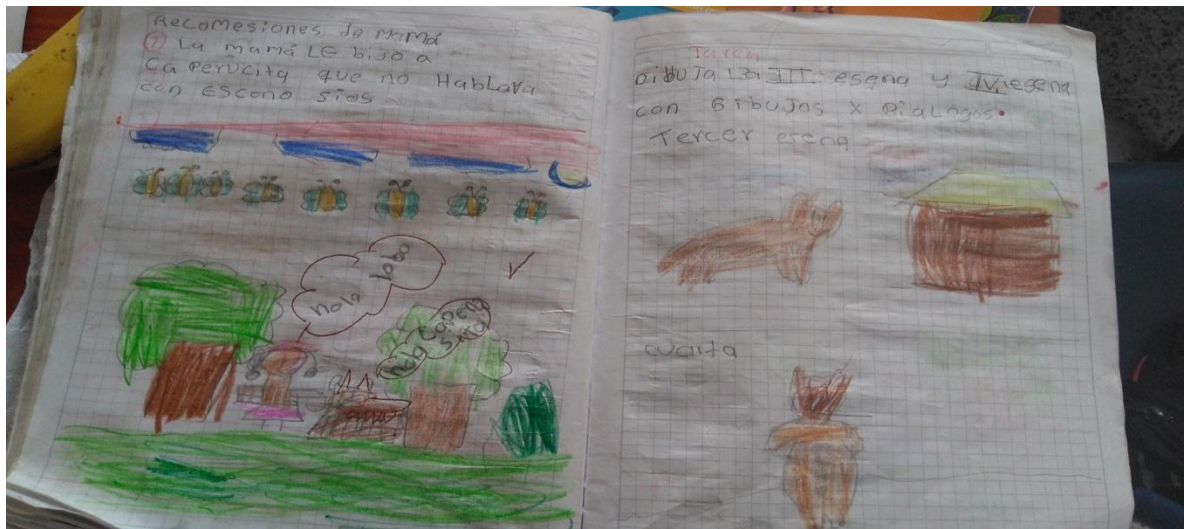 Recomesiones de mamá
① La mamá LE bijo a
Caperucita que no Hablava
con Esconosios
hola lobo
hola caperusita
Tarea
Dibuja La III. esena y IV. esena
con Bibujos x Dialogos.
Tercer esena
cuarta